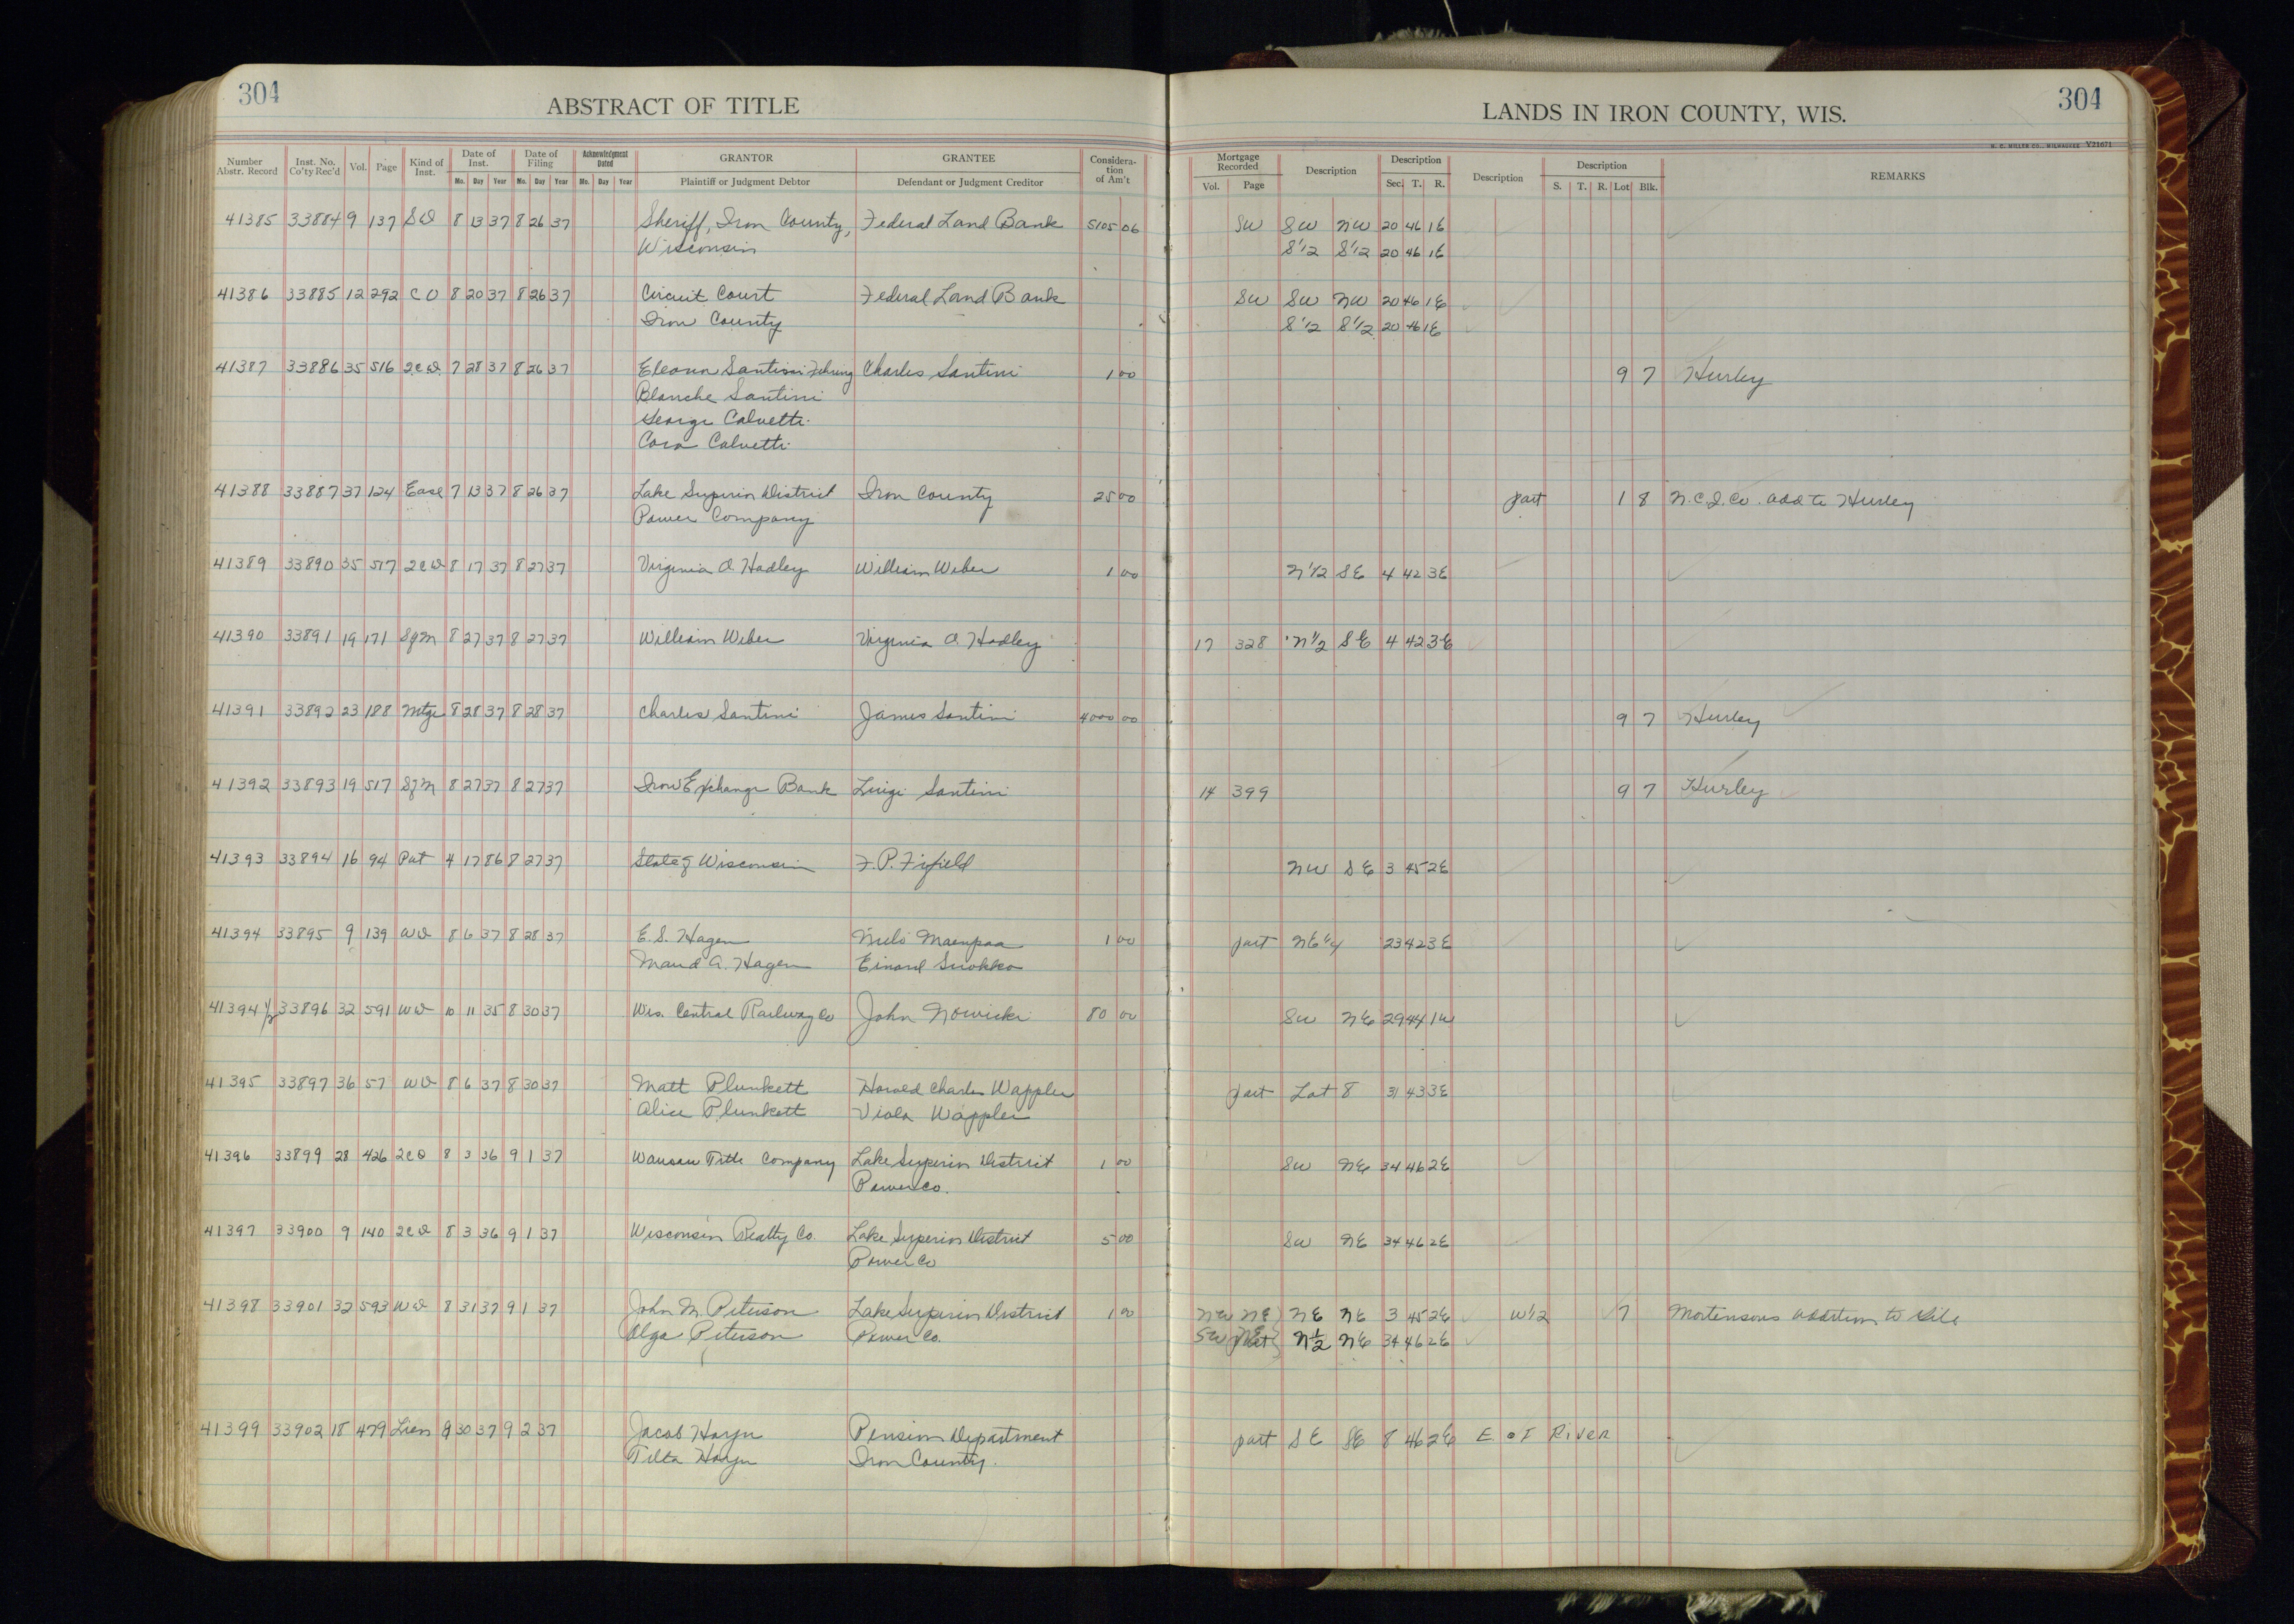 304
ABSTRACT OF TITLE
LANDS IN IRON COUNTY, WIS.
304
H. C. MILLER CO., MILWAUKEE V21671
Number Abstr. Record Inst. No. Co'ty Rec'd Vol. Page Kind of Inst. Date of Inst. Mo. Day Year Date of Filing Mo. Day Year Acknowledgment Dated Mo. Day Year GRANTOR Plaintiff or Judgment Debtor GRANTEE Defendant or Judgment Creditor Consideration of Am't Mortgage Recorded Vol. Page Description Description Sec. T. R. Description Description S. T. R. Lot Blk. REMARKS
41385 33884 9 137 SD 8 13 37 8 26 37 Sheriff, Iron County, Federal Land Bank 5105 06 SW SW NW 20 46 1E
Wisconsin S1/2 S1/2 20 46 1E
41386 33885 12 292 CO 8 20 37 8 26 37 Circuit Court Federal Land Bank SW SW NW 20 46 1E
Iron County S1/2 S1/2 20 46 1E
41387 33886 35 516 2CD 7 28 37 8 26 37 Santini Charles Santini 1 00 9 7 Hurley
Blanche Santini
George Calvetti
Cora Calvetti
41388 33887 37 124 Ease 7 13 37 8 26 37 Lake Superior District Iron County 25 00 part 1 8 N.C.I.Co. add to Hurley
Power Company
41389 33890 35 517 2CD 8 17 37 8 27 37 Virginia O. Hadley William Weber 1 00 N1/2 SE 4 42 3E
41390 33891 19 171 SgM 8 27 37 8 27 37 William Weber Virginia O. Hadley 17 328 N1/2 SE 4 42 3E
41391 33892 23 188 Mtge 8 28 37 8 28 37 Charles Santini James Santini 4000 00 9 7 Hurley
41392 33893 19 517 SgM 8 27 37 8 27 37 Iron Exchange Bank Luigi Santini 14 399 9 7 Hurley
41393 33894 16 94 Pat 4 17 86 8 27 37 State of Wisconsin F.P. Fifield NW SE 3 45 2E
41394 33895 9 139 WD 8 6 37 8 28 37 E.S. Hagen Maenpaa 1 00 part NE1/4 23 42 3E
Maud A. Hagen Einard
41394 1/2 33896 32 591 WD 10 11 35 8 30 37 Wis. Central Railway Co John Nowicki 80 00 SW NE 29 44 1W
41395 33897 36 57 WD 8 6 37 8 30 37 Matt Plunkett Harold Charles Wappler part Lot 8 31 43 3E
Alice Plunkett Viola Wappler
41396 33899 28 426 2CD 8 3 36 9 1 37 Wausau Title Company Lake Superior District 1 00 SW NE 34 46 2E
Power Co.
41397 33900 9 140 2CD 8 3 36 9 1 37 Wisconsin Realty Co. Lake Superior District 5 00 SW NE 34 46 2E
Power Co
41398 33901 32 593 WD 8 31 37 9 1 37 John M. Peterson Lake Superior District 1 00 NW NE NE NE 3 45 2E W1/2 7 Mortensons Addition to Gile
Olga Peterson Power Co. SW part N1/2 NE 34 46 2E
41399 33902 18 479 Lien 30 37 9 2 37 Jacob Pension Department part SE SE 8 46 2E E. of River
Iron County.